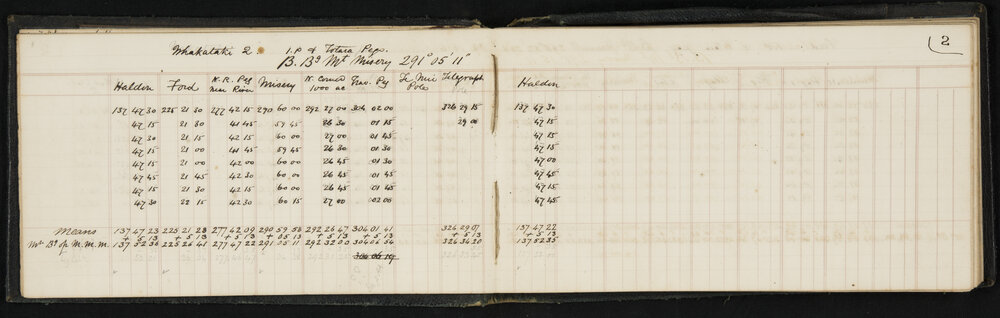 2
Whakataki 2. I.P & Totara Pegs.
B. Bg Mt Misery 291° 05' 11"
Halden Ford N.R. Peg near River Misery N. Corner 1000 ac Trav. Pg Te Mui Pole Telegraph Halden
137 47 30 225 21 30 277 42 15 290 60 00 292 27 00 304 02 00 326 29 15 137 47 30
47 15 21 30 41 45 59 45 26 30 01 15 29 00 47 15
47 30 21 15 42 15 60 00 27 00 01 45 47 15
47 15 21 00 41 45 59 45 26 30 01 30 47 15
47 15 21 00 42 00 60 00 26 45 01 30 47 00
47 45 21 45 42 30 60 00 26 45 01 45 47 45
47 15 21 30 42 15 60 00 26 45 01 45 47 15
47 30 22 15 42 30 60 15 27 00 02 00 47 45
Means 137 47 23 225 21 28 277 42 09 290 59 58 292 26 47 304 01 41 326 29 07 137 47 22
+ 5 13 + 5 13 + 5 13 + 5 13 + 5 13 + 5 13 + 5 13 + 5 13
Mn Bg of M.m.m. 137 52 36 225 26 41 277 47 22 291 05 11 292 32 00 304 06 54 326 34 20 137 52 35